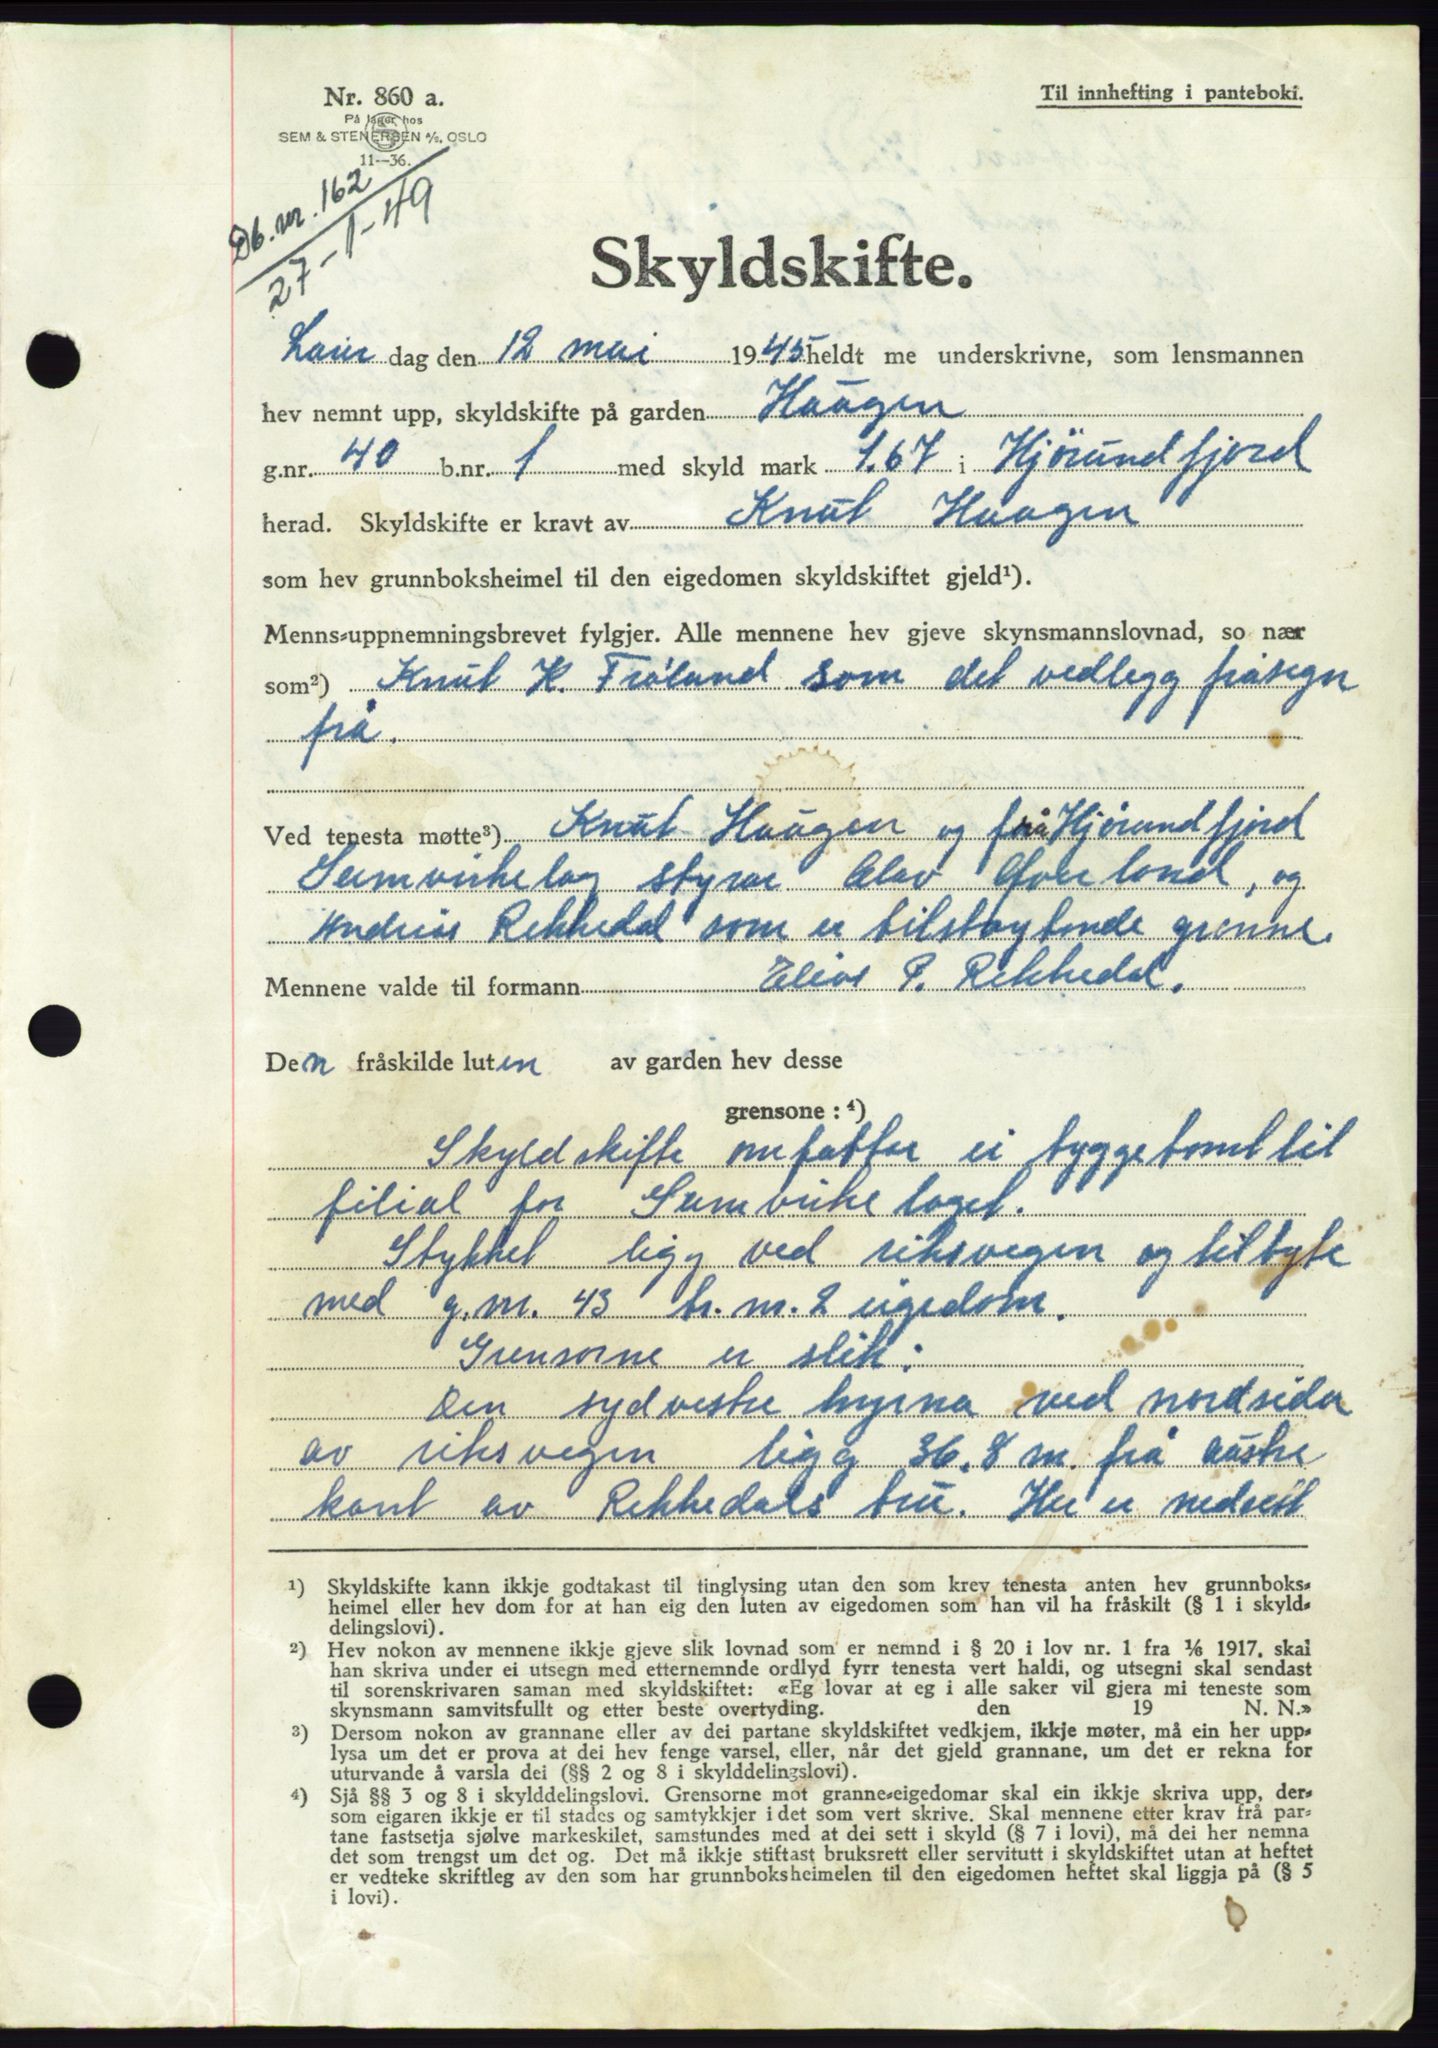 Nr. 860 a.
På lager hos
SEM & STENERSEN A/S, OSLO
11--36.
Til innhefting i panteboki.
Db. nr. 162
27-1-49
Skyldskifte.
Laur dag den 12 mai 1945 heldt me underskrivne, som lensmannen
hev nemnt upp, skyldskifte på garden Haugen
g.nr. 40 b.nr. 1 med skyld mark 1.67 i Hjörundfjord
herad. Skyldskifte er kravt av Knut Haugen
som hev grunnboksheimel til den eigedomen skyldskiftet gjeld¹).
Menns-uppnemningsbrevet fylgjer. Alle mennene hev gjeve skynsmannslovnad, so nær
som²) Knut K. Frøland som det vedlegg fråsegn
frå.
Ved tenesta møtte³) Knut Haugen og frå Hjörundfjord
Samvirkelag styrar Olav Øverland, og
Andreas Rekkedal som er tilstøytande granne.
Mennene valde til formann Elias P. Rekkedal.
Den fråskilde luten av garden hev desse
grensone: ⁴)
Skyldskifte omfattar ei byggetomt til
filial for Samvirkelaget.
Stykket ligg ved riksvegen og tilbyte
med g.nr. 43 br.nr. 2 eigedom.
Grensorne er slik:
Den sydvestre hyrna ved nordsida
av riksvegen ligg 36.8 m. frå austre
kant av Rekkedals bru. Her er nedsett
¹) Skyldskifte kann ikkje godtakast til tinglysing utan den som krev tenesta anten hev grunnboks-
heimel eller hev dom for at han eig den luten av eigedomen som han vil ha fråskilt (§ 1 i skyld-
delingslovi).
²) Hev nokon av mennene ikkje gjeve slik lovnad som er nemnd i § 20 i lov nr. 1 fra 1/6 1917, skal
han skriva under ei utsegn med etternemnde ordlyd fyrr tenesta vert haldi, og utsegni skal sendast
til sorenskrivaren saman med skyldskiftet: «Eg lovar at eg i alle saker vil gjera mi teneste som
skynsmann samvitsfullt og etter beste overtyding. den 19 N. N.»
³) Dersom nokon av grannane eller av dei partane skyldskiftet vedkjem, ikkje møter, må ein her upp-
lysa um det er prova at dei hev fenge varsel, eller, når det gjeld grannane, um det er rekna for
uturvande å varsla dei (§§ 2 og 8 i skylddelingslovi).
⁴) Sjå §§ 3 og 8 i skylddelingslovi. Grensorne mot granne-eigedomar skal ein ikkje skriva upp, der-
som eigaren ikkje er til stades og samtykkjer i det som vert skrive. Skal mennene etter krav frå par-
tane fastsetja sjølve markeskilet, samstundes med at dei sett i skyld (§ 7 i lovi), må dei her nemna
det som trengst um det og. Det må ikkje stiftast bruksrett eller servitutt i skyldskiftet utan at heftet
er vedteke skriftleg av den som har grunnboksheimelen til den eigedomen heftet skal liggja på (§ 5
i lovi).